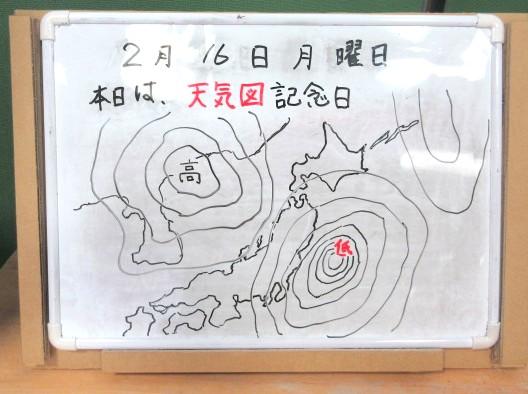 2月 16日 月曜日
本日は、天気図記念日
高
低